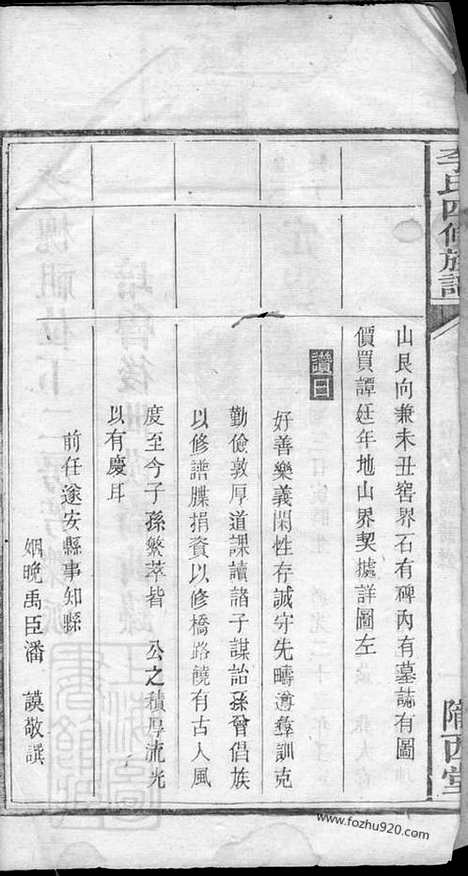 李氏四修族譜
隴西堂
山艮向兼未丑窖界石有碑內有墓誌有圖
價買譚廷年地山界契據詳圖左
讚曰
好善樂義閑性存誠守先疇遵彝訓克
勤儉敦厚道課讀諸子謀詒孫曾倡族
以修譜牒捐資以修橋路饒有古人風
度至今子孫繁萃皆 公之積厚流光
以有慶耳
前任遂安縣事知縣
姻晚禹臣潘 謨敬譔
www.fozhu920.com